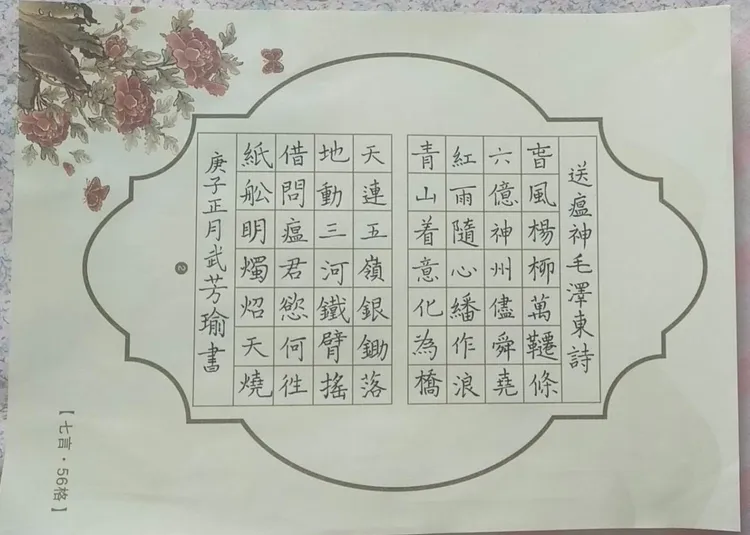 送瘟神毛澤東詩
旾風楊柳萬韆條
六億神州儘舜堯
紅雨隨心繙作浪
青山着意化為橋
天連五嶺銀鋤落
地動三河鐵臂搖
借問瘟君慾何徃
紙舩明燭炤天燒
庚子正月武芳瑜書
2
【七言·56格】